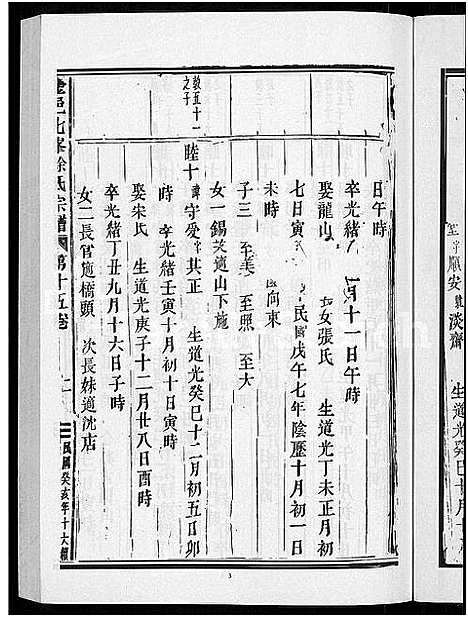 至字順安號淡齋 生道光癸巳十月十八
日午時
卒光緒 十一日午時
娶龍山 女張氏 生道光丁未正月初
七日寅 民國戊午七年陰歷十月初一日
未時 向東
子三 至美 至照 至大
女一錫英適山下施
敦五十一之子
睦十 諱守受字其正 生道光癸巳十二月初五日卯
時 卒光緒壬寅十月初十日寅時
娶宋氏 生道光庚子十二月廿八日酉時
卒光緒丁丑九月十六日子時
女二長官適橋頭 次長妹適沈店
峯徐氏宗譜 第十五卷
民國癸亥年十六
3